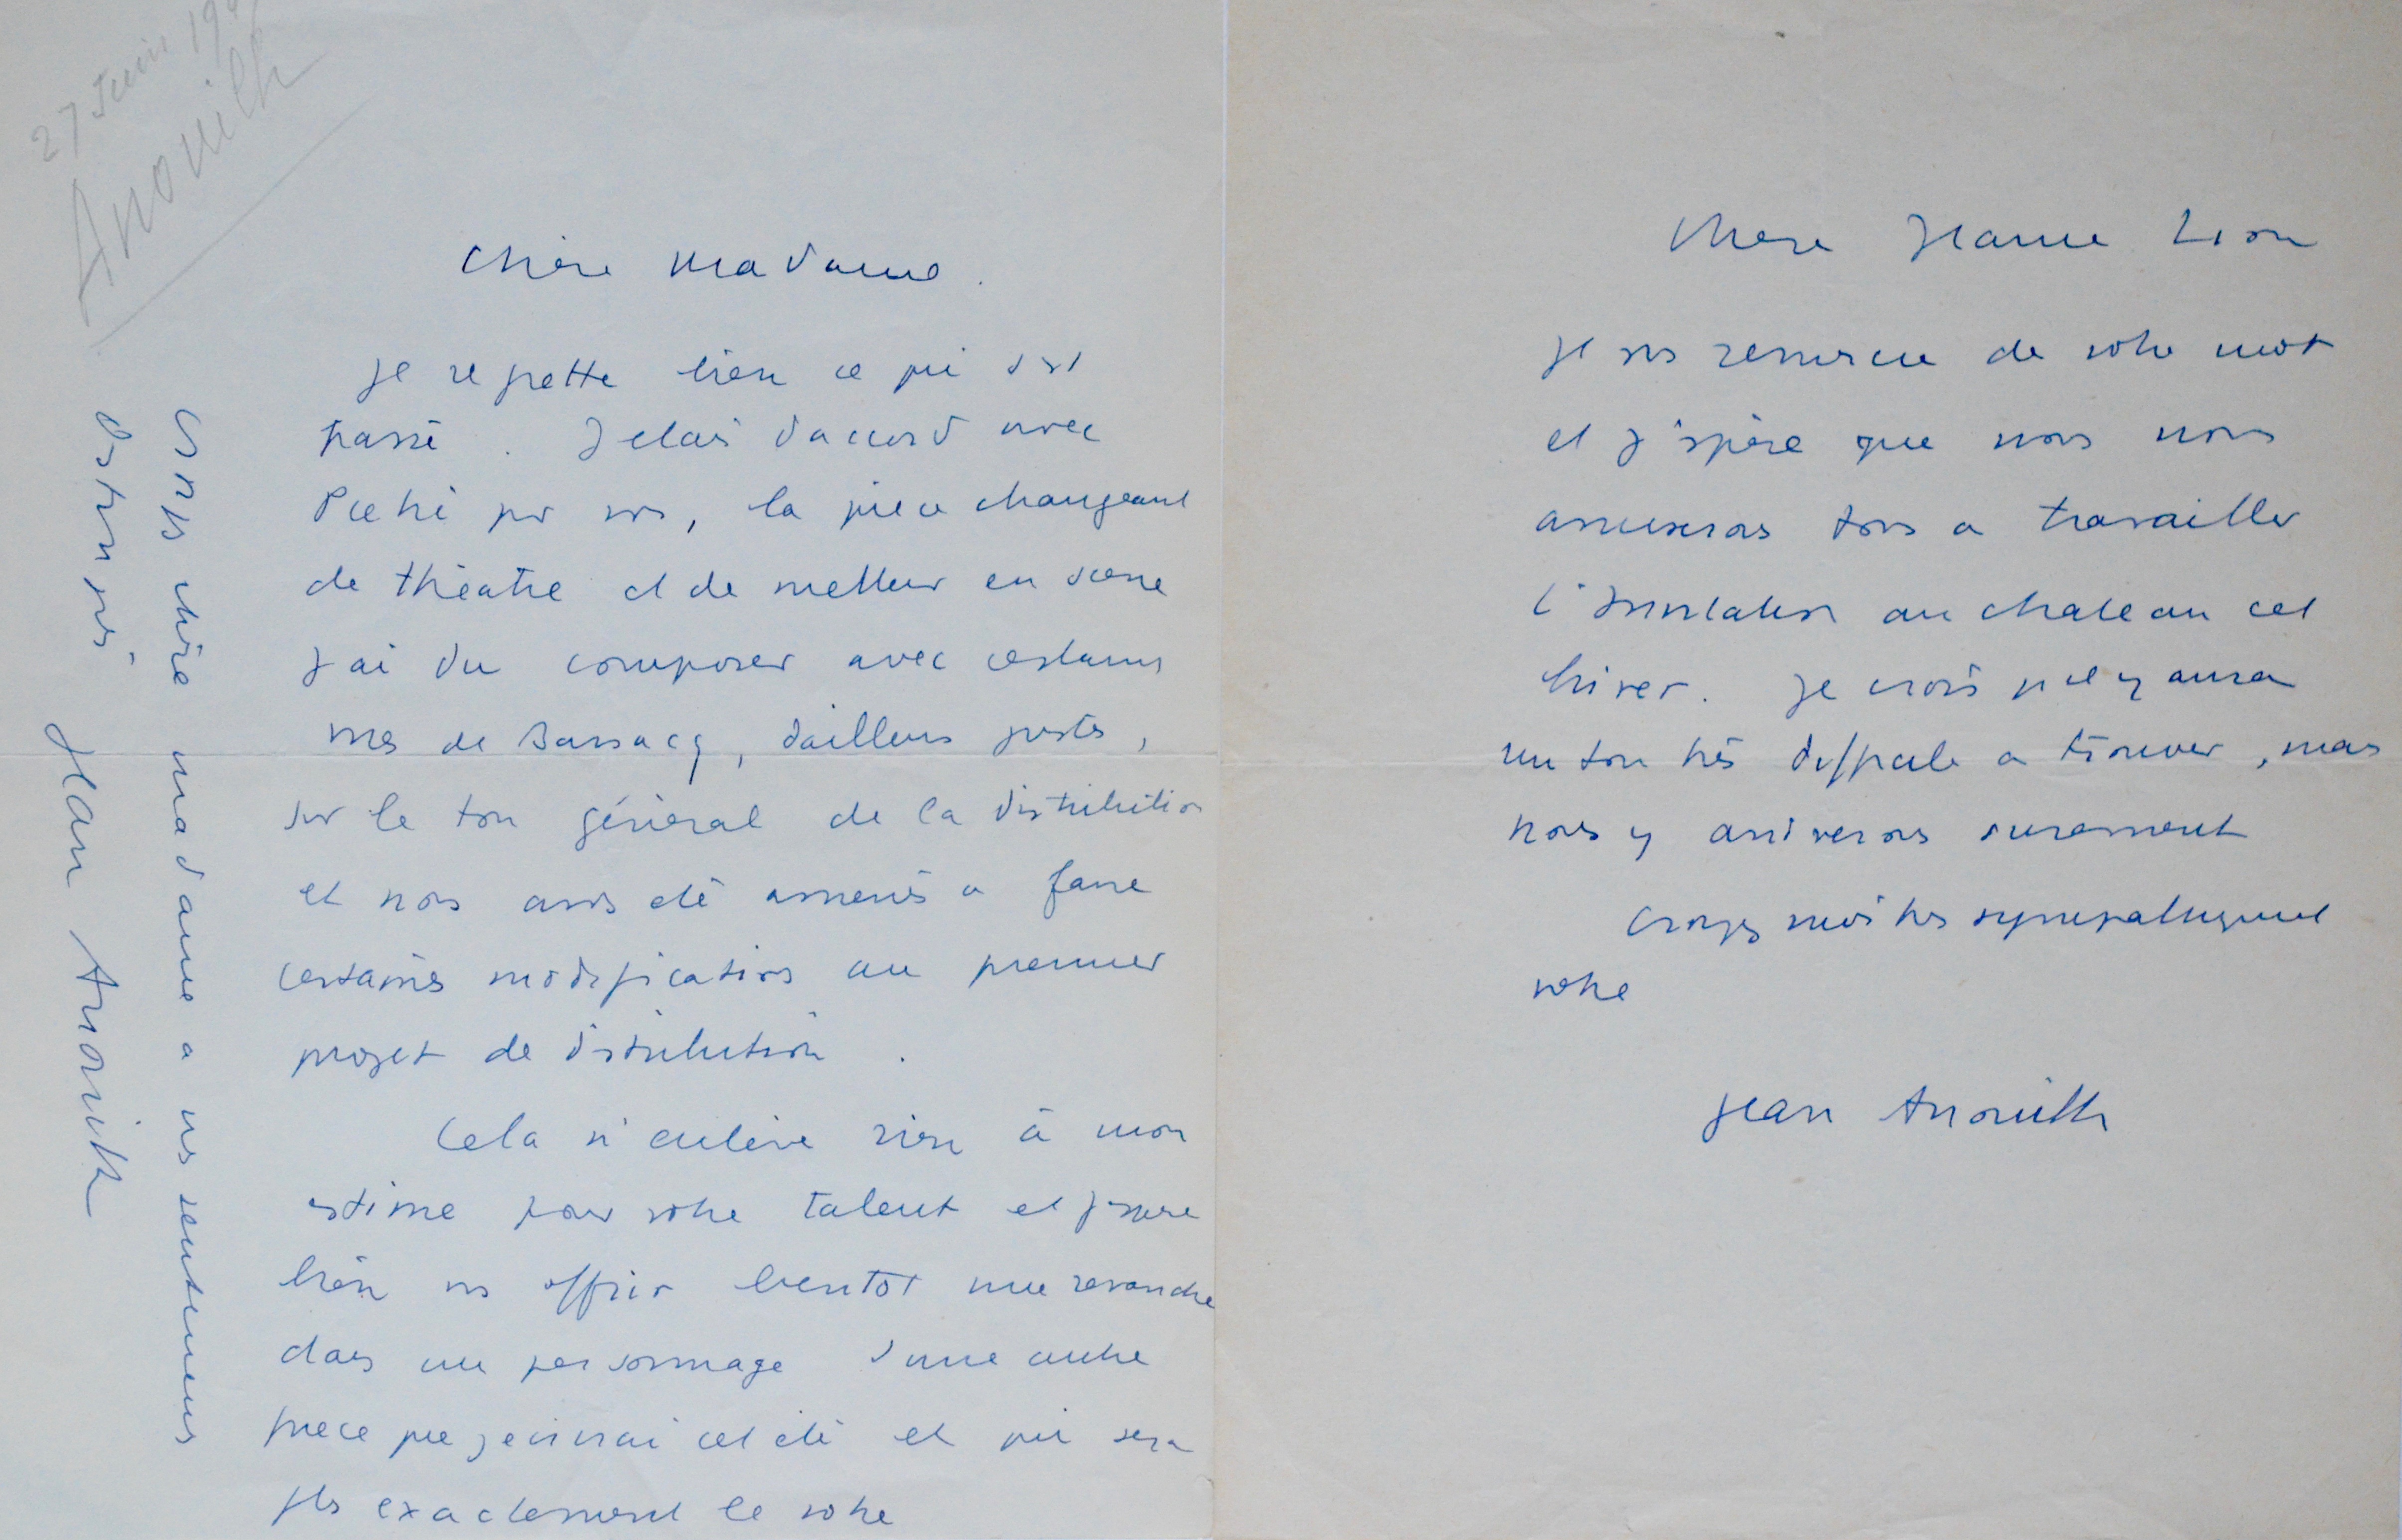 27 Juin 19
Anouilh
Chère Madame.
Je regrette bien ce qui s'est
passé. J'etais d'accord avec
Poetri pr vs, la pièce changeant
de théatre et de metteur en scene
j'ai du composer avec certaines
vues de Barsacq, d'ailleurs justes,
sur le ton général de la distribution
et nous avons été amenés a faire
certaines modifications au premier
projet de distribution.
Cela n'enlève rien à mon
estime pour votre talent et j'espere
bien vs offrir bientot une revanche
dans un personnage d'une autre
piece que j'ecrirai cet été et qui sera
plus exactement le votre
Croyez chère madame a mes sentiments
Jean Anouilh
Chere Jeanne Lion
Je vous remercie de votre mot
et j'espère que nous nous
amuserons tous a travailler
l'Invitation au chateau cet
hiver. Je crois qu'il y aura
un ton très difficile a trouver, mais
nous y arriverons surement
Croyez moi tres sympathiquement
votre
Jean Anouilh